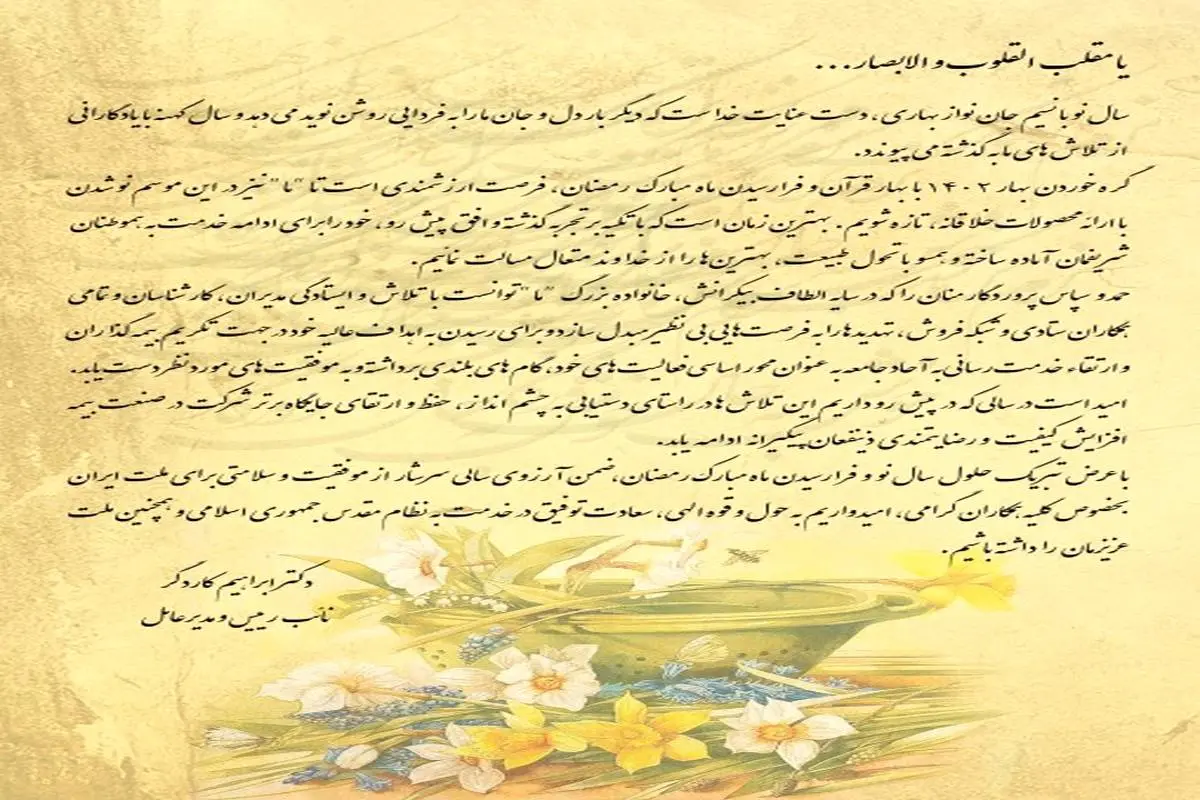 یا مقلب القلوب و الابصار...
سال نو با نسیم جان نواز بهاری، دست عنایت خداست که دیگر بار دل و جان ما را به فردایی روشن نوید می دهد و سال کهنه با یادگارانی
از تلاش های ما به گذشته می پیوندد.
گره خوردن بهار ۱۴۰۲ با بهار قرآن و فرا رسیدن ماه مبارک رمضان، فرصت ارزشمندی است تا "ما" نیز در این موسم نو شدن
با ارائه محصولات خلاقانه، تازه شویم. بهترین زمان است که با تکیه بر تجربه گذشته و افق پیش رو، خود را برای ادامه خدمت به هموطنان
شریفمان آماده ساخته و همسو با تحول طبیعت، بهترین ها را از خداوند متعال مسالت نمائیم.
حمد و سپاس پروردگار منان را که در سایه الطاف بیکرانش، خانواده بزرگ "ما" توانست با تلاش و ایستادگی مدیران، کارشناسان و تمامی
همکاران ستادی و شبکه فروش، تهدیدها را به فرصت هایی بی نظیر مبدل سازد و برای رسیدن به اهداف عالیه خود در جهت تکریم بیمه گذاران
و ارتقاء خدمت رسانی به آحاد جامعه به عنوان محور اساسی فعالیت های خود، گام های بلندی برداشته و به موفقیت های مورد نظر دست یابد.
امید است در سالی که در پیش رو داریم این تلاش ها در راستای دستیابی به چشم انداز، حفظ و ارتقای جایگاه برتر شرکت در صنعت بیمه
افزایش کیفیت و رضایتمندی ذینفعان پیگیرانه ادامه یابد.
با عرض تبریک حلول سال نو و فرا رسیدن ماه مبارک رمضان، ضمن آرزوی سالی سرشار از موفقیت و سلامتی برای ملت ایران
بخصوص کلیه همکاران گرامی، امیدواریم به حول و قوه الهی، سعادت توفیق در خدمت به نظام مقدس جمهوری اسلامی و همچنین ملت
عزیزمان را داشته باشیم.
دکتر ابراهیم کاردگر
نائب رییس و مدیرعامل